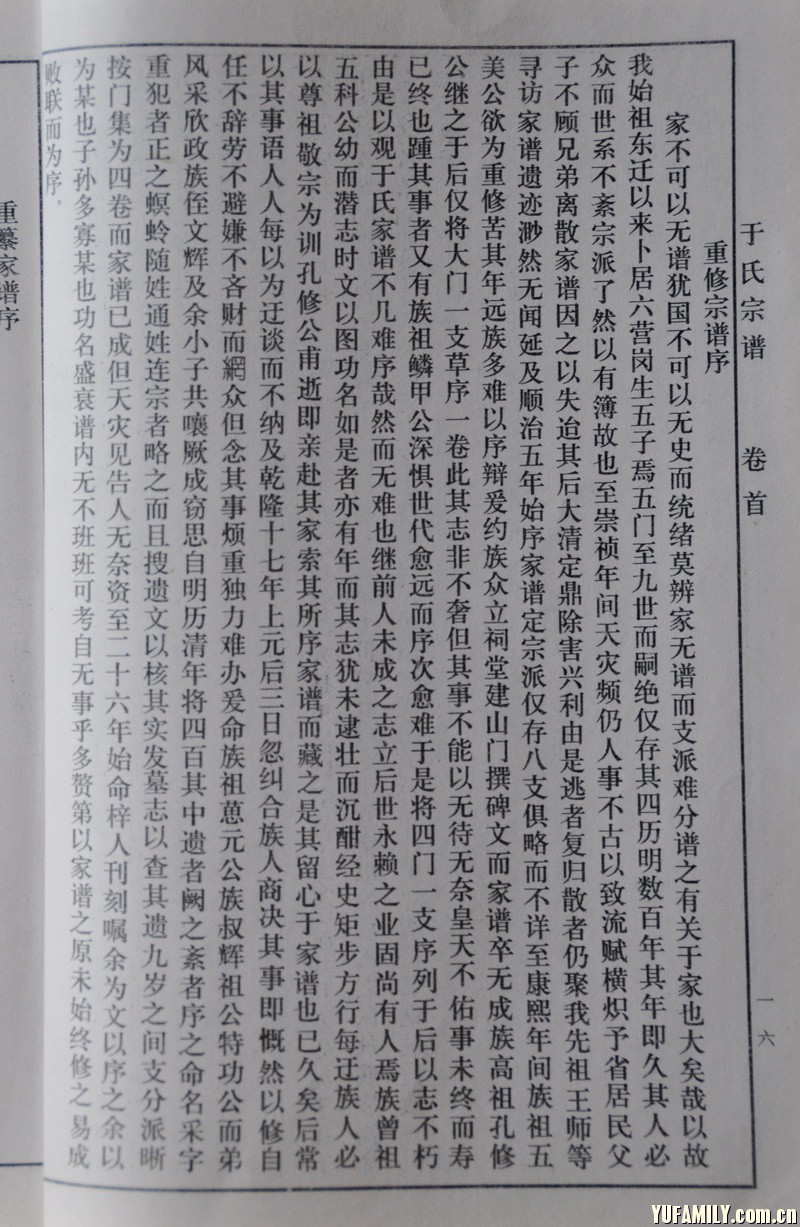 于氏宗谱 卷首 一六
重修宗谱序
家不可以无谱犹国不可以无史而统绪莫辨家无谱而支派难分谱之有关于家也大矣哉以故
我始祖东迁以来卜居六营岗生五子焉五门至九世而嗣绝仅存其四历明数百年其年即久其人必
众而世系不紊宗派了然以有簿故也至崇祯年间天灾频仍人事不古以致流赋横炽予省居民父
子不顾兄弟离散家谱因之以失迨其后大清定鼎除害兴利由是逃者复归散者仍聚我先祖王师等
寻访家谱遗迹渺然无闻延及顺治五年始序家谱定宗派仅存八支俱略而不详至康熙年间族祖五
美公欲为重修苦其年远族多难以序辩爰约族众立祠堂建山门撰碑文而家谱卒无成族高祖孔修
公继之于后仅将大门一支草序一卷此其志非不奢但其事不能以无待无奈皇天不佑事未终而寿
已终也踵其事者又有族祖鳞甲公深惧世代愈远而序次愈难于是将四门一支序列于后以志不朽
由是以观于氏家谱不几难序哉然而无难也继前人未成之志立后世永赖之业固尚有人焉族曾祖
五科公幼而潜志时文以图功名如是者亦有年而其志犹未逮壮而沉酣经史矩步方行每迂族人必
以尊祖敬宗为训孔修公甫逝即亲赴其家索其所序家谱而藏之是其留心于家谱也已久矣后常
以其事语人人每以为迂谈而不纳及乾隆十七年上元后三日忽纠合族人商决其事即慨然以修自
任不辞劳不避嫌不吝财而網众但念其事烦重独力难办爰命族祖蒠元公族叔辉祖公特功公而弟
风采欣政族侄文辉及余小子共嚷厥成窃思自明历清年将四百其中遗者阙之紊者序之命名采字
重犯者正之螟蛉随姓通姓连宗者略之而且搜遗文以核其实发墓志以查其遗九岁之间支分派晰
按门集为四卷而家谱已成但天灾见告人无奈资至二十六年始命梓人刊刻嘱余为文以序之余以
为某也子孙多寡某也功名盛衰谱内无不班班可考自无事乎多赘第以家谱之原未始终修之易成
败联而为序。
重纂家谱序
YUFAMILY.com.cn